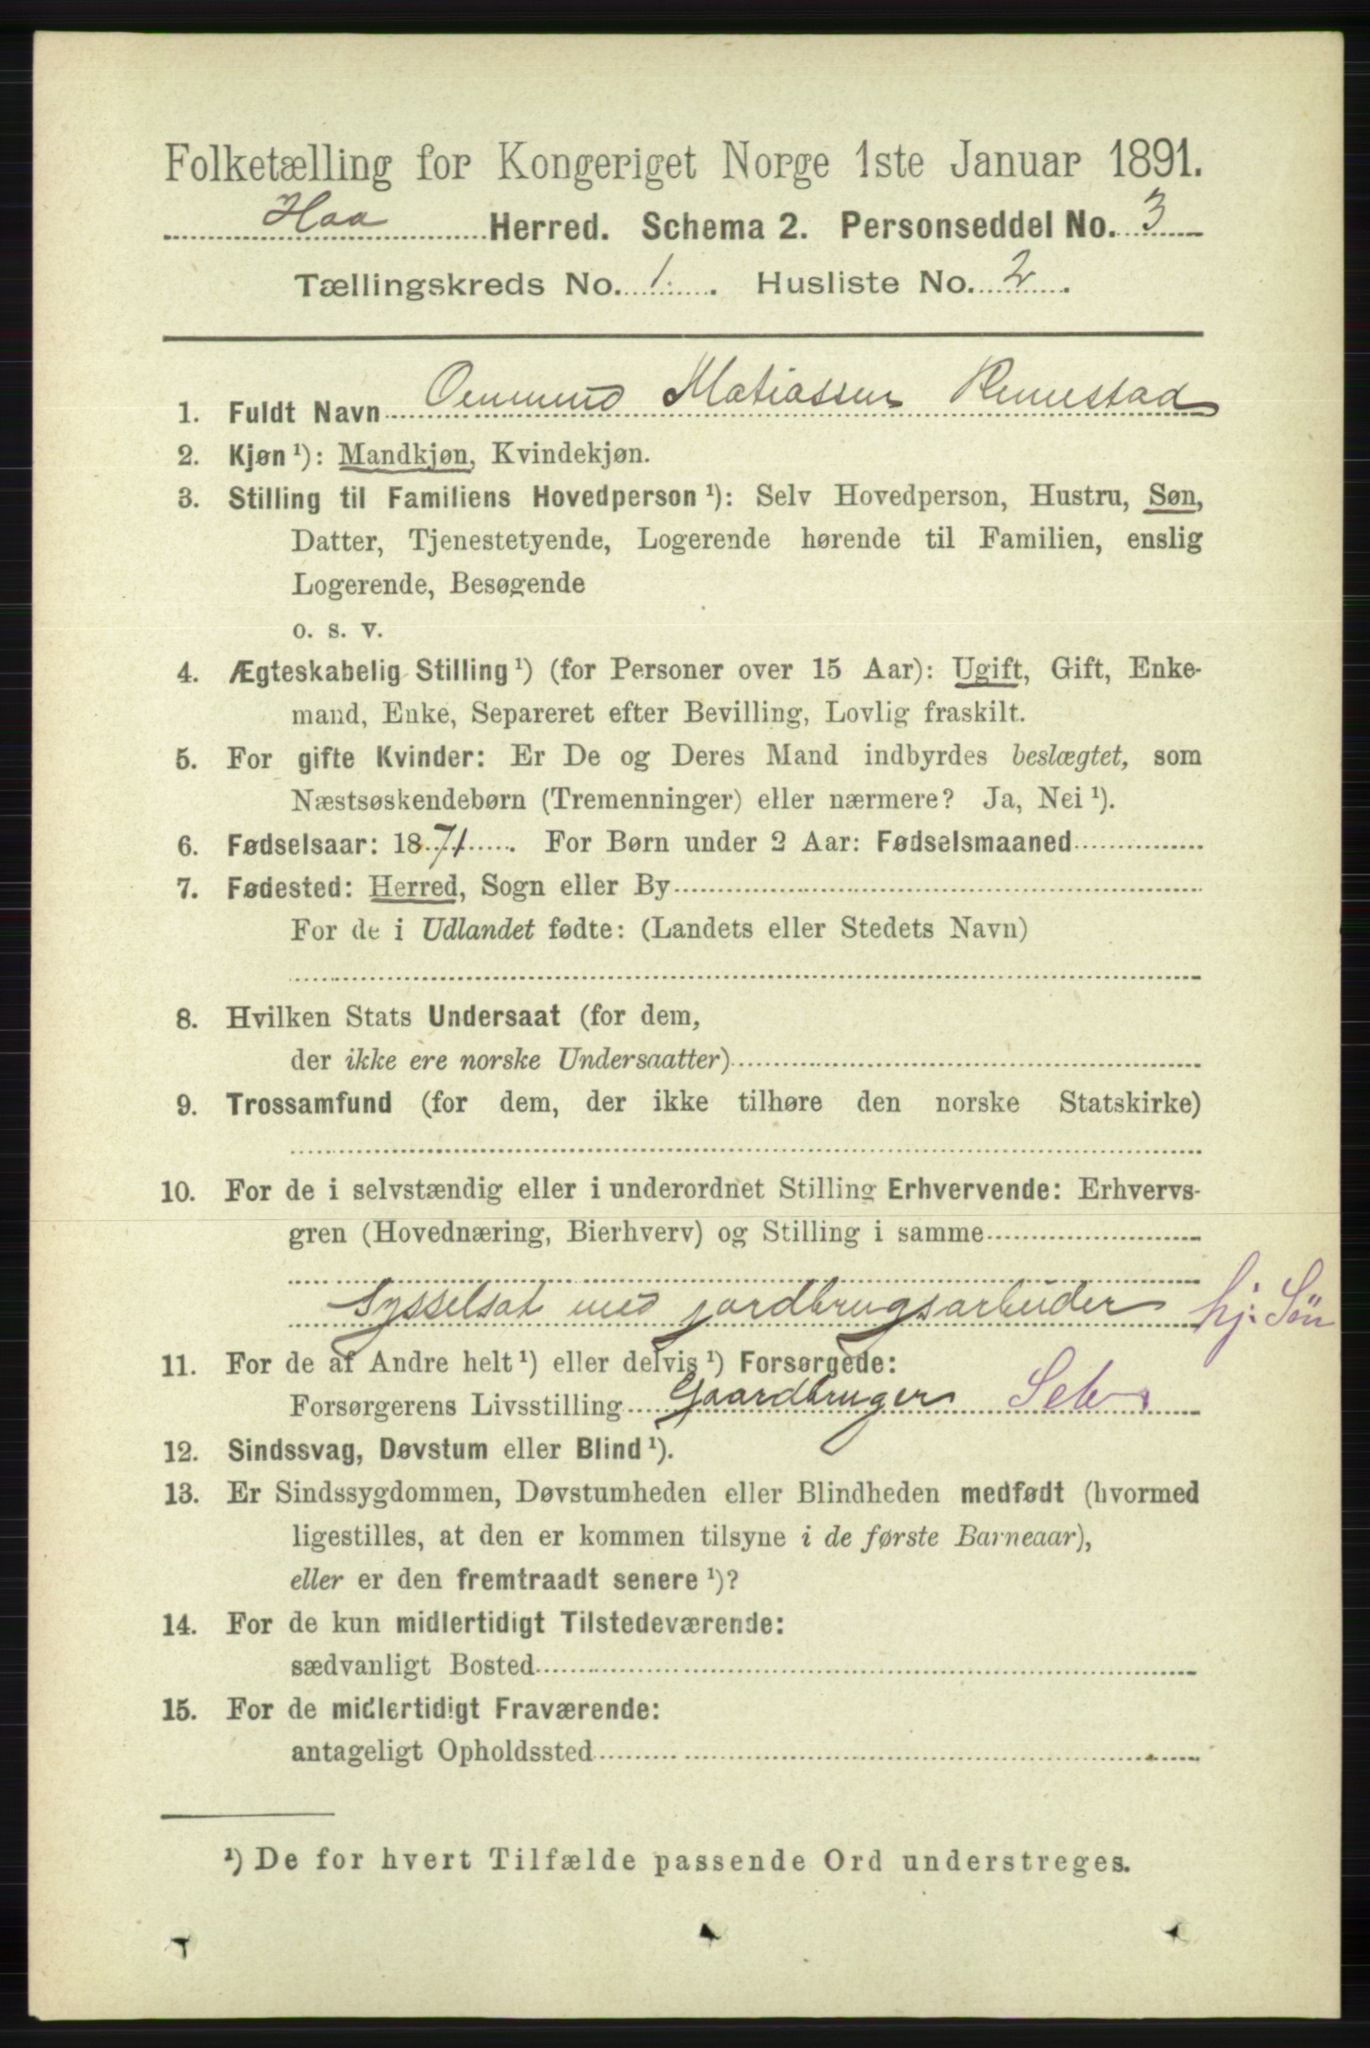 Folketælling for Kongeriget Norge 1ste Januar 1891.
Haa Herred. Schema 2. Personseddel No. 3
Tællingskreds No. 1. Husliste No. 2.
1. Fuldt Navn Ommund Matiassen Rimestad
2. Kjøn ¹): Mandkjøn, Kvindekjøn.
3. Stilling til Familiens Hovedperson ¹): Selv Hovedperson, Hustru, Søn,
Datter, Tjenestetyende, Logerende hørende til Familien, enslig
Logerende, Besøgende
o. s. v.
4. Ægteskabelig Stilling ¹) (for Personer over 15 Aar): Ugift, Gift, Enke-
mand, Enke, Separeret efter Bevilling, Lovlig fraskilt.
5. For gifte Kvinder: Er De og Deres Mand indbyrdes beslægtet, som
Næstsøskendebørn (Tremenninger) eller nærmere? Ja, Nei ¹).
6. Fødselsaar: 1871. For Børn under 2 Aar: Fødselsmaaned
7. Fødested: Herred, Sogn eller By
For de i Udlandet fødte: (Landets eller Stedets Navn)
8. Hvilken Stats Undersaat (for dem,
der ikke ere norske Undersaatter)
9. Trossamfund (for dem, der ikke tilhøre den norske Statskirke)
10. For de i selvstændig eller i underordnet Stilling Erhvervende: Erhvervs-
gren (Hovednæring, Bierhverv) og Stilling i samme
Sysselsat med jordbrugsarbeider hj. Søn
11. For de af Andre helt ¹) eller delvis ¹) Forsørgede:
Forsørgerens Livsstilling Gaardbruger Selv
12. Sindssvag, Døvstum eller Blind ¹).
13. Er Sindssygdommen, Døvstumheden eller Blindheden medfødt (hvormed
ligestilles, at den er kommen tilsyne i de første Barneaar),
eller er den fremtraadt senere ¹)?
14. For de kun midlertidigt Tilstedeværende:
sædvanligt Bosted
15. For de midlertidigt Fraværende:
antageligt Opholdssted
¹) De for hvert Tilfælde passende Ord understreges.